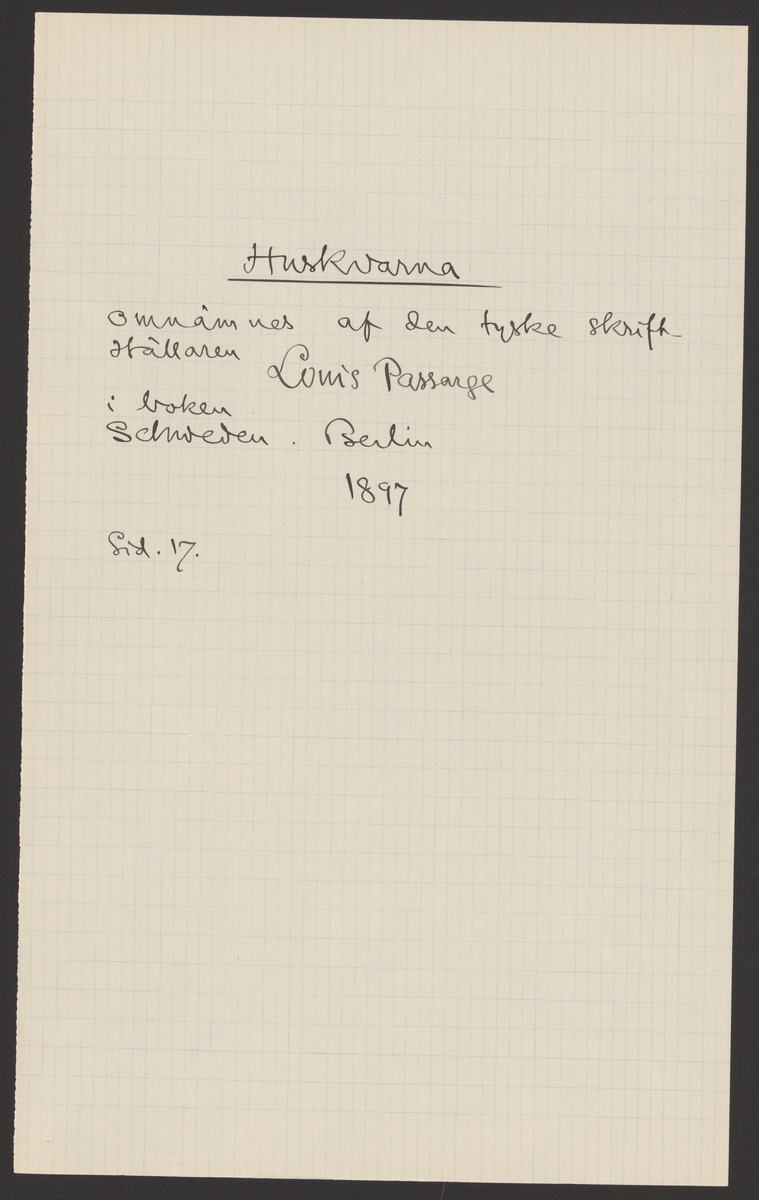 Huskvarna
omnämnes af den tyske skrift-
ställaren Louis Passarge
i boken
Schweden. Berlin
1897
Sid. 17.